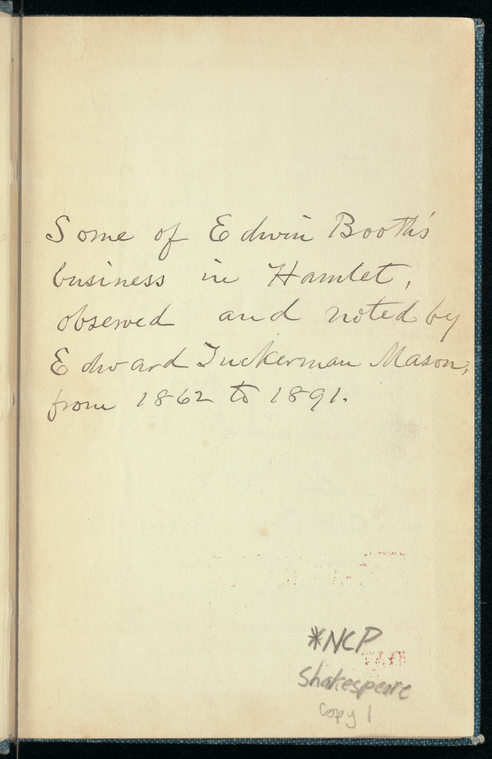 Some of Edwin Booth's
business in Hamlet,
observed and noted by
Edward Tuckerman Mason,
from 1862 to 1891.
*NCP
Shakespeare
Copy 1